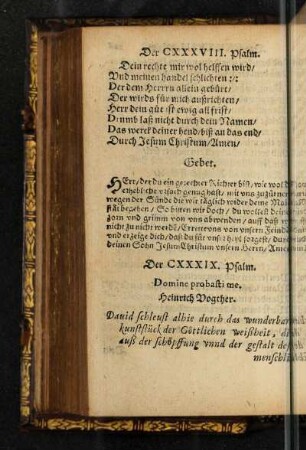 Der CXXXVIII. Psalm.
Dein rechte mir wol helffen wird/
Vnd meinen handel schlichten :/:
Der dem Herren allein gebürt/
Der wirds für mich außrichten/
Herr dein güt ist ewig all frist/
Drumb laß nicht durch dein Namen/
Das werck deiner hend/biß an das end/
Durch Jesum Christum/Amen/
Gebet.
HErr/der du ein gerechter Richter bist/wie wol
vrsach genug hast/mit vns zu zürnen
wegen der Sünde die wir täglich wider deine
begehen/So bitten wir doch/Du wollest deinen
zorn vnd grimm von vns abwenden/auff daß wir
nicht zu nicht werdē/Errette vns von vnsern Feinden
vnd erzeige dich/daß du für vns sorgest/durch
deinen Sohn Jesum Christum vnsern Herrn/Amen
Der CXXXIX. Psalm.
Domine probasti me.
Heinrich Vogther.
Dauid schleust alhie durch das wunderbar
kunststück der Göttlichen weißheit,
auß der schöpffung vnnd der gestalt des
menschli